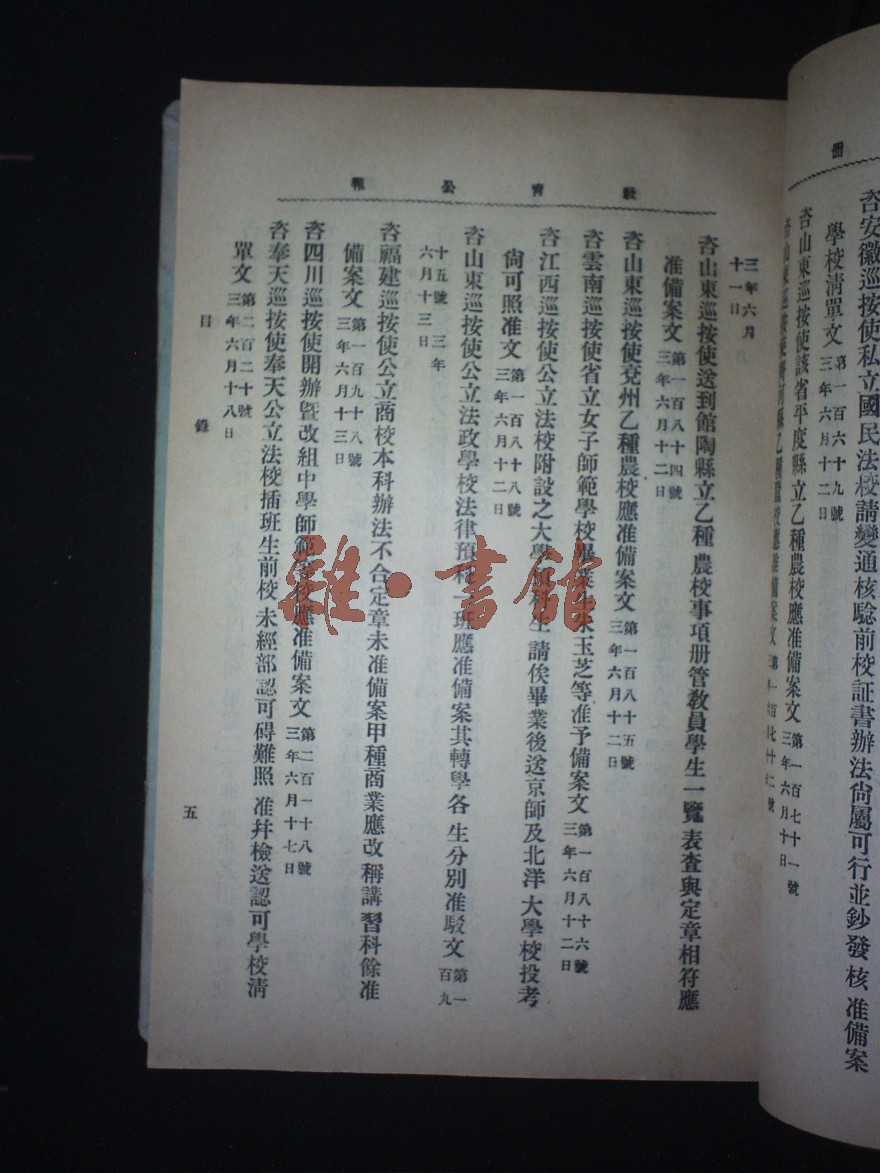 冊
咨安徽巡按使私立國民法校請變通核騐前校証書辦法尙屬可行並鈔發核准備案
學校淸單文 第一百六十九號 三年六月十二日
咨山東巡按使該省平度縣立乙種農校應准備案文 第一百七十一號 三年六月十日
咨山東巡按使 縣乙種 校應准備案文
敎育公報
三年六月十一日
咨山東巡按使送到館陶縣立乙種農校事項册管敎員學生一覽表査與定章相符應
准備案文 第一百八十四號 三年六月十二日
咨山東巡按使兗州乙種農校應准備案文 第一百八十五號 三年六月十二日
咨雲南巡按使省立女子師範學校畢業生 玉芝等准予備案文 第一百八十六號 三年六月十二日
咨江西巡按使公立法校附設之大學預科生請俟畢業後送京師及北洋大學校投考
尙可照准文 第一百八十八號 三年六月十二日
咨山東巡按使公立法政學校法律預科一班應准備案其轉學各生分別准駁文 第一百九
十五號 三年六月十三日
咨福建巡按使公立商校本科辦法不合定章未准備案甲種商業應改稱講習科餘准
備案文 第一百九十八號 三年六月十三日
咨四川巡按使開辦曁改組中學師範等校應准備案文 第二百一十八號 三年六月十七日
咨奉天巡按使奉天公立法校插班生前校未經部認可碍難照准幷檢送認可學校淸
單文 第二百二十號 三年六月十八日
目錄
五
雜·書館